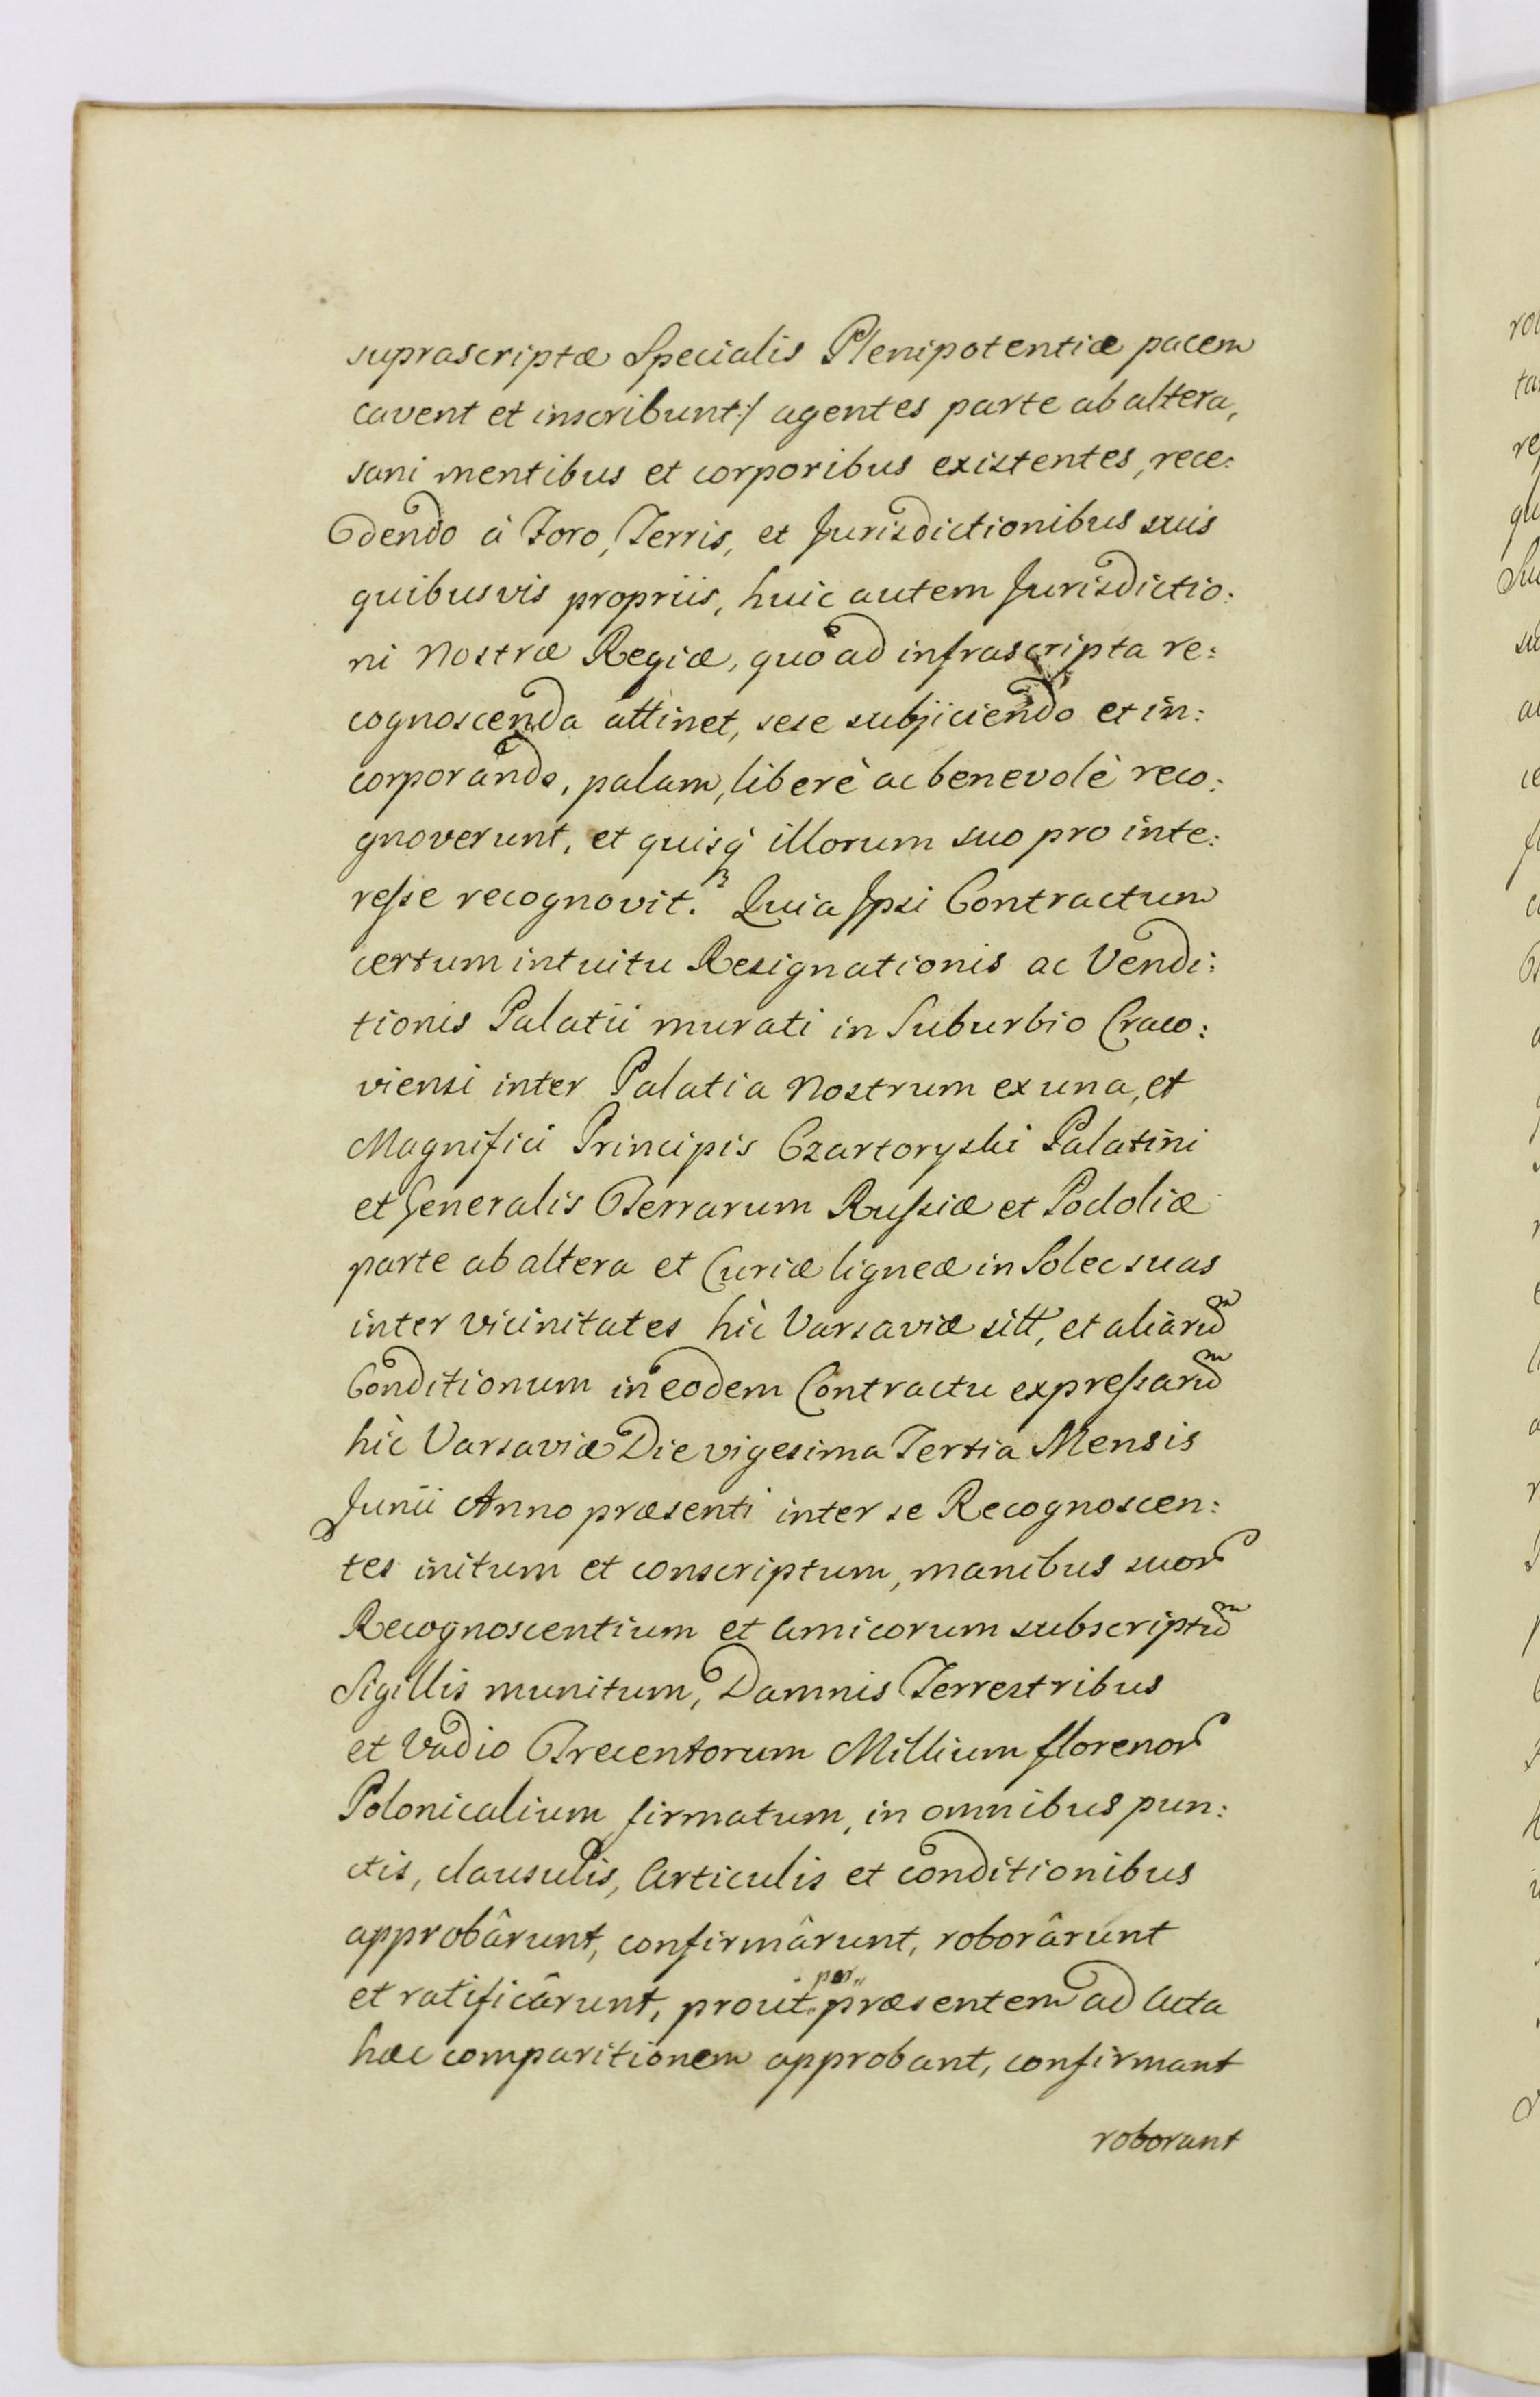 suprascriptæ Specialis Plenipotentiæ pacem
cavent et inscribunt:/ agentes parte ab altera,
sani mentibus et corporibus existentes, rece:
dendo à Foro, Terris, et Jurisdictionibus suis
quibusvis propriis, huic autem Jurisdictio:
ni Nostræ Regiæ, quò ad infrascripta re:
cognoscenda attinet, sese subjiciendo et in:
corporando, palam, liberè ac benevolè reco:
gnoverunt, et quisq́ illorum suo pro inte:
reſse recognovit. Quia Ipsi Contractum
certum intuitu Resignationis ac Vendi:
tionis Palatii murati in Suburbio Craco:
viensi inter Palatia Nostrum ex una, et
Magnifici Principis Czartoryski Palatini
et Generalis Terrarum Ruſsiæ et Podoliæ
parte ab altera et Curiæ ligneæ in Solec suas
inter vicinitates hìc Varsaviæ sitt, et aliarũ
Conditionum in eodem Contractu expreſsarũ
hìc Varsaviæ Die vigesima Tertia Mensis
Junii Anno præsenti inter se Recognoscen:
tes initum et conscriptum, manibus suor
Recognoscentium et Amicorum subscriptũ
Sigillis munitum, Damnis Terrestribus
et Vadio Trecentorum Millium florenor
Polonicalium firmatum, in omnibus pun:
ctis, clausulis, Articulis et conditionibus
approbârunt, confirmârunt, roborârunt
et ratificârunt, prout per præsentem ad Acta
hæc comparitionem approbant, confirmant
roborant